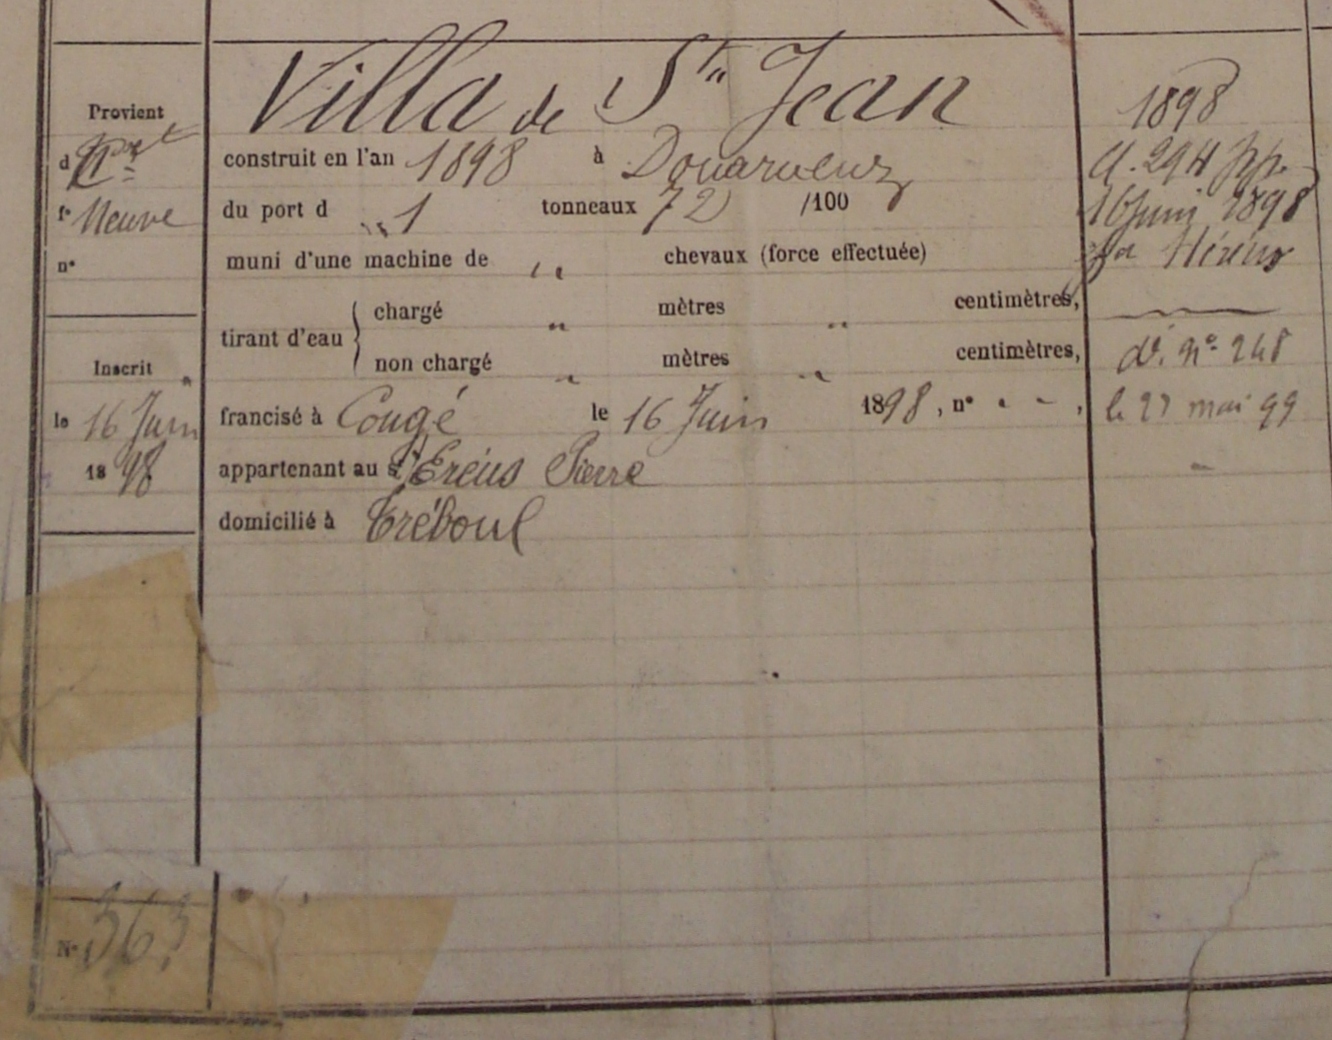 Villa de Ste Jean
Provient
d
fe Neuve
n°
construit en l'an 1898 à Douarnenez
du port d " 1 tonneaux 72 /100
muni d'une machine de " chevaux (force effectuée)
tirant d'eau
chargé " mètres " centimètres,
non chargé " mètres " centimètres,
Inscrit
le 16 Juin
1898
francisé à Congé le 16 Juin 1898, n° " - ,
appartenant au Sr Eréus Pierre
domicilié à Tréboul
1898
a. 294
16 Juin 1898
di. n° 248
le 27 mai 99
N° 363